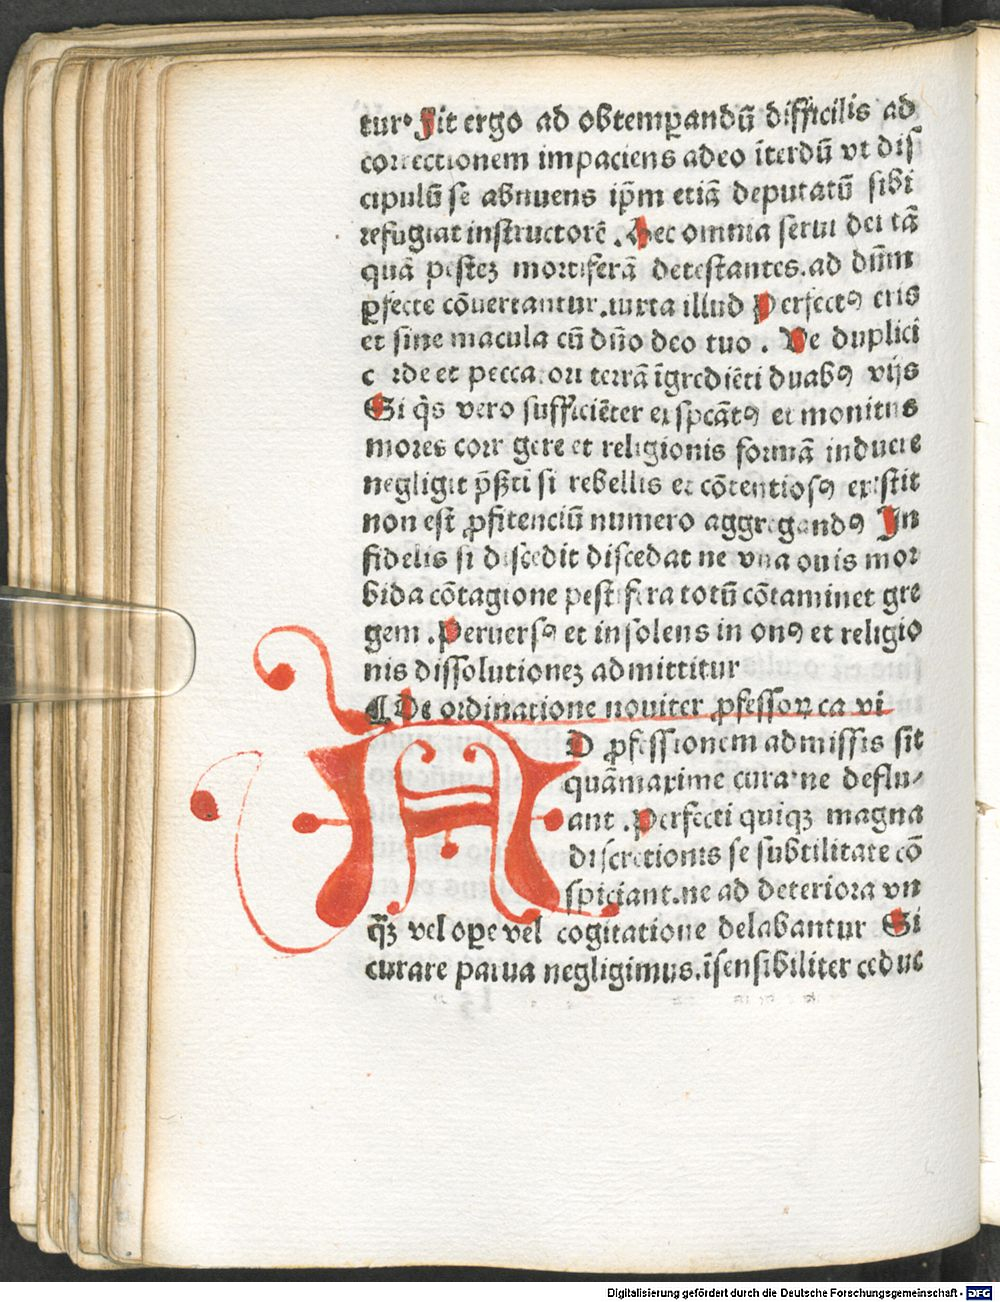 tur· Fit ergo ad obtemꝑandū difficilis ad
correctionem impaciens adeo īterdū vt diſ
cipulū ſe abnuens ip̄m etiā deputatū ſibi
refugiat inſtructorē . Hec omnia ſerui dei tā
quā peſtez mortiferā deteſtantes. ad dn̄m
ꝑfecte cōuertantur. iuxta illud Perfectꝰ eris
et ſine macula cū dn̄o deo tuo . Ve duplici
corde et peccatori terrā īgrediēti duabꝰ vijs
Si q̄s vero ſufficiēter exſpcātꝰ et monitus
mores corrigere et religionis formā inducre
negligit p̄ẞti ſi rebellis et cōtentioſꝰ exiſtit
non eſt ꝓfitenciū numero aggregandꝰ In
fidelis ſi diſcedit diſcedat ne vna ouis mor
bida cōtagione peſtifera totū cōtaminet gre
gem . Peruerſꝰ et inſolens in onꝰ et religio
nis diſſolutionez admittitur
¶ De ordinatione nouiter ꝓfeſſoꝝ ca vi
AD ꝓfeſſionem admiſſis ſit
quāmaxime cura·ne deflu⸗
ant . Perfecti quiqꝫ magna
diſcretionis ſe ſubtilitate cō
ſpiciant. ne ad deteriora vn
q̄ꝫ vel oꝑe vel cogitatione delabantur Si
curare parua negligimus. īſenſibiliter ceduc
Digitalisierung gefördert durch die Deutsche Forschungsgemeinschaft - DFG